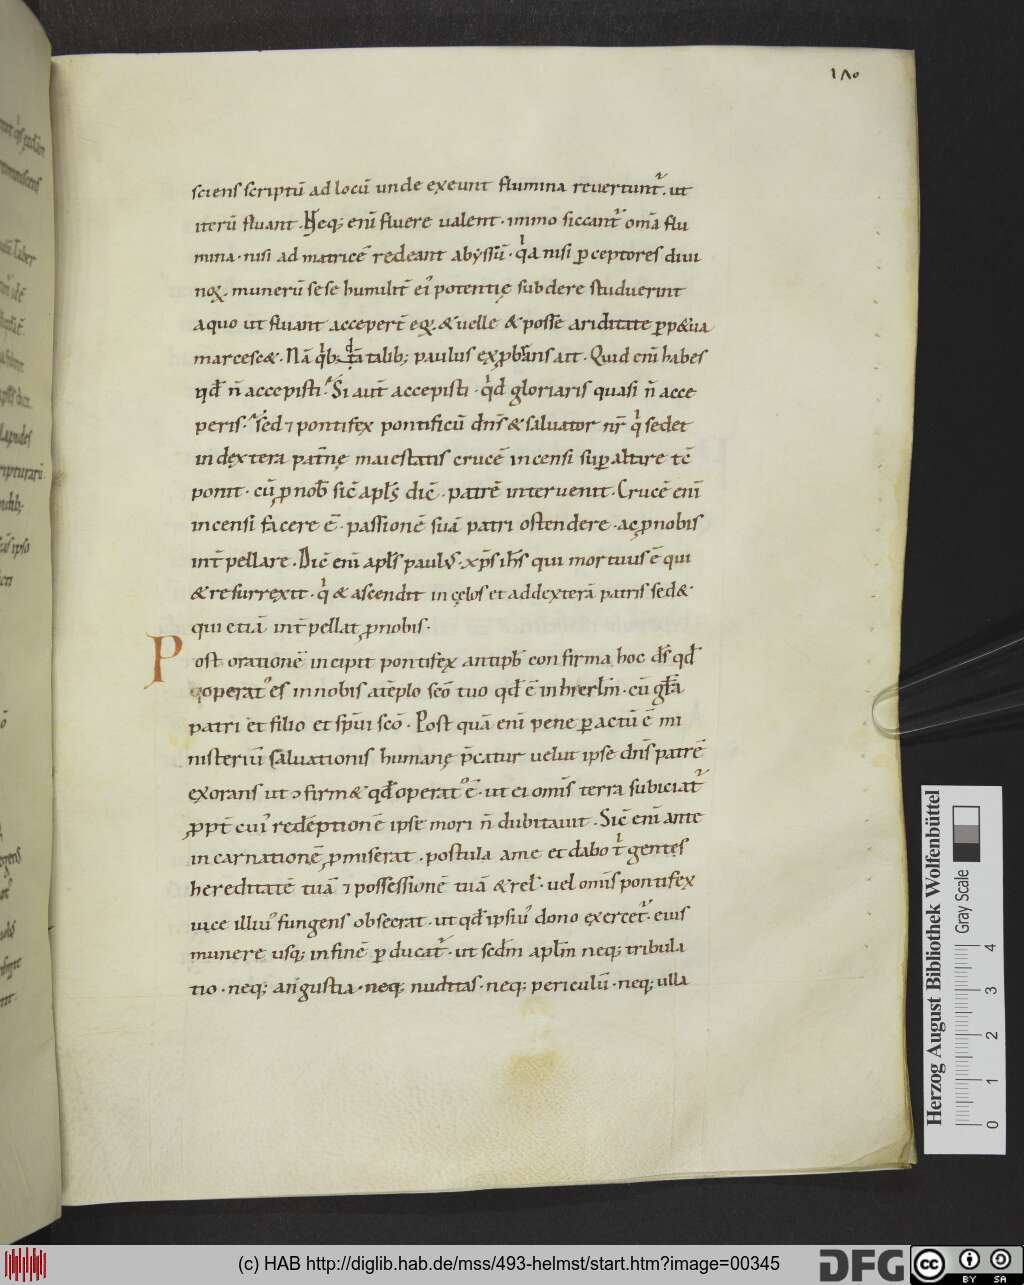 180
sciens scriptū ad locū unde exeunt flumina reuertunt᷑. ut
iterū fluant. Neq; enī fluere ualent. immo siccant᷑ om̄a flu
mina. nisi ad matricē redeant abyssū. qͥa nisi ꝑceptores diui
noꝝ. munerū sese humilit̄ ei᷒ potentię subdere studuerint
a quo ut fluant acceper̄t eqꝫ. & uelle & posse ariditate ꝑp&ua
marcesc&. Nā
talib; paulus
ait. Quid enī habes
qd̄ n̄ accepisti. Si aut̄ accepisti. qͥd gloriaris quasi n̄ acce
peris. sed ⁊ pontifex pontificū dn̄s & saluator nr̄ qͥ sedet
in dextera pat̄nę maiestatis crucē incensi suꝑ altare tē
ponit. cū ꝓ nob̄ sic̄ apl̄s dic̄. patrē interuenit. Crucē enī
incensi facere ē. passionē suā patri ostendere. ac ꝓ nobis
int̄pellare. Dic̄ enī apl̄s paulus. xp̄s ih̄s qui mortuus ē qui
& resurrexit. qͥ & ascendit in cęlos et ad dexterā patris sed&
qui etiā int̄pellat ꝓ nobis.
Post orationē incipit pontifex antiph̄ confirma hoc ds̄ qd̄
operat᷒ es in nobis a tēplo sc̄o tuo qd̄ ē in hierl̄m. cū gl̄a
patri et filio et sp̄ui sc̄o. Post quā enī pene ꝑactū ē mi
nisteriū saluationis humanę p̄catur uelut ipse dn̄s patrē
exorans ut ↄfirm& qd̄ operat᷒ ē. ut ei om̄is terra subiciat᷑
ꝓpt̄ cui᷒ redēptionē ipse mori n̄ dubitauit. Sic̄ enī ante
incarnationē ꝓmiserat. postula a me et dabo tͥ gentes
hereditatē tuā ⁊ possessionē tuā & rel̄. uel om̄is pontifex
uice illiu᷒ fungens obsecrat. ut qd̄ ipsiu᷒ dono exercet᷑. eius
munere usq; in finē ꝑducat᷑. ut sed̄m apl̄m neq; tribula
tio. neq; angustia. neq; nuditas. neq; periculū. neq; ulla
Herzog August Bibliothek Wolfenbüttel
Gray Scale
0 1 2 3 4
(c) HAB http://diglib.hab.de/mss/493-helmst/start.htm?image=00345
DFG
cc BY SA